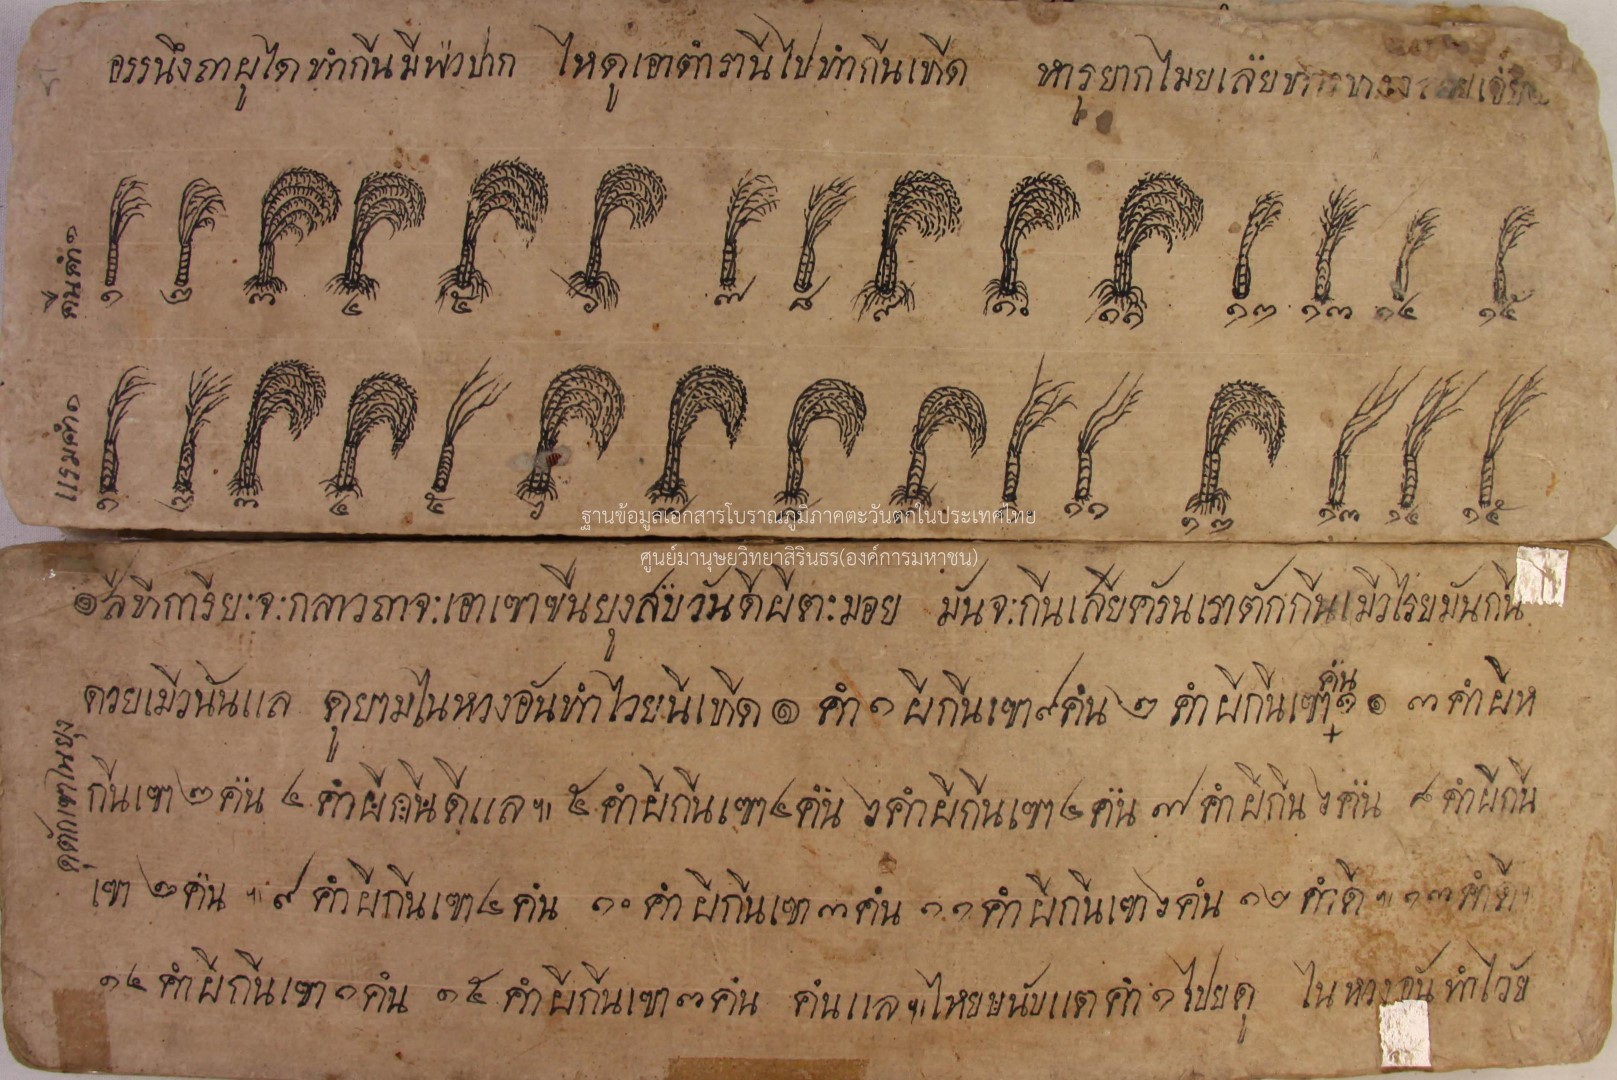 อรรนึงถาผูไดทำกีนมีฟ่วปาก ไหดูเอาตำรานีไปทำกีนเทีด หารุยากไมยเลีย
คืนคำ๑
๑ ๒ ๓ ๔ ๕ ๖ ๗ ๘ ๙ ๑๐ ๑๑ ๑๓ ๑๓ ๑๔ ๑๕
แรมคำ๑
๑ ๒ ๓ ๔ ๕ ๖ ๑๑ ๑๓ ๑๓ ๑๔ ๑๕
ฐานข้อมูลเอกสารโบราณภูมิภาคตะวันตกในประเทศไทย
ศูนย์มานุษยวิทยาสิรินธร(องค์การมหาชน)
๏สีทีการียะจะกลาวถาจะเอาเขาขืนยุงสบัวันดีผีตะมอย มันจะกีนเสียครันเราตักกีนเมีวไรยมันกนี
ดวยเมีวนันแล ดูยามไนหวงอันทำไวยนีเทีด๏ คำ๑ ผีกีนเขา๙คํน ๒ คำผีกีนเขา๑ คํน ๏ ๓คำผีห
ดูตักเขาไนยุง
กีนเขา๒คํน ๔ คำผีคืนดีแล๚ ๕ คำผีกีนเขา๔คํน ๖คำผีกีนเขา๔คํน ๗คำผีกีน๖คํน ๘คำผีกีน
เขา ๒คํน ๚ ๙ คำผีกีนเขา๔คํน ๑๐ คำผีกีนเขา๓คํน ๑๑คำผีกีนเขา๖คํน ๑๒ คำดี๚ ๑๓คำดี
๑๔ คำผีกีนเขา๑คํน ๑๕ คำผีกีนเขา๓คํน คํนแล๚ไหยยนับแตคำ๑ไปยดู ไนหวงอันทำไวัย